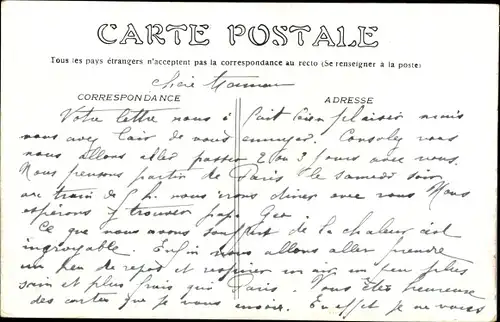 CARTE POSTALE
Tous les pays étrangers n'acceptent pas la correspondance au recto (Se renseigner à la poste)
Chère Maman
CORRESPONDANCE ADRESSE
Votre lettre nous a fait bien plaisir mais
vous avez l'air de vous ennuyer. Consolez vous
nous allons aller passer 2 ou 3 jours avec vous.
Nous pensons partir de Paris le samedi soir
au train de h. nous irons diner avec vous Nous
espérons y trouver papa Geo.
Ce que nous avons souffert de la chaleur c'est
incroyable. Enfin nous allons aller prendre
un peu de repos et respirer un air un peu plus
sain et plus frais qu'à Paris. Vous êtes heureuse
des cartes que je vous envoie. En effet je ne vous